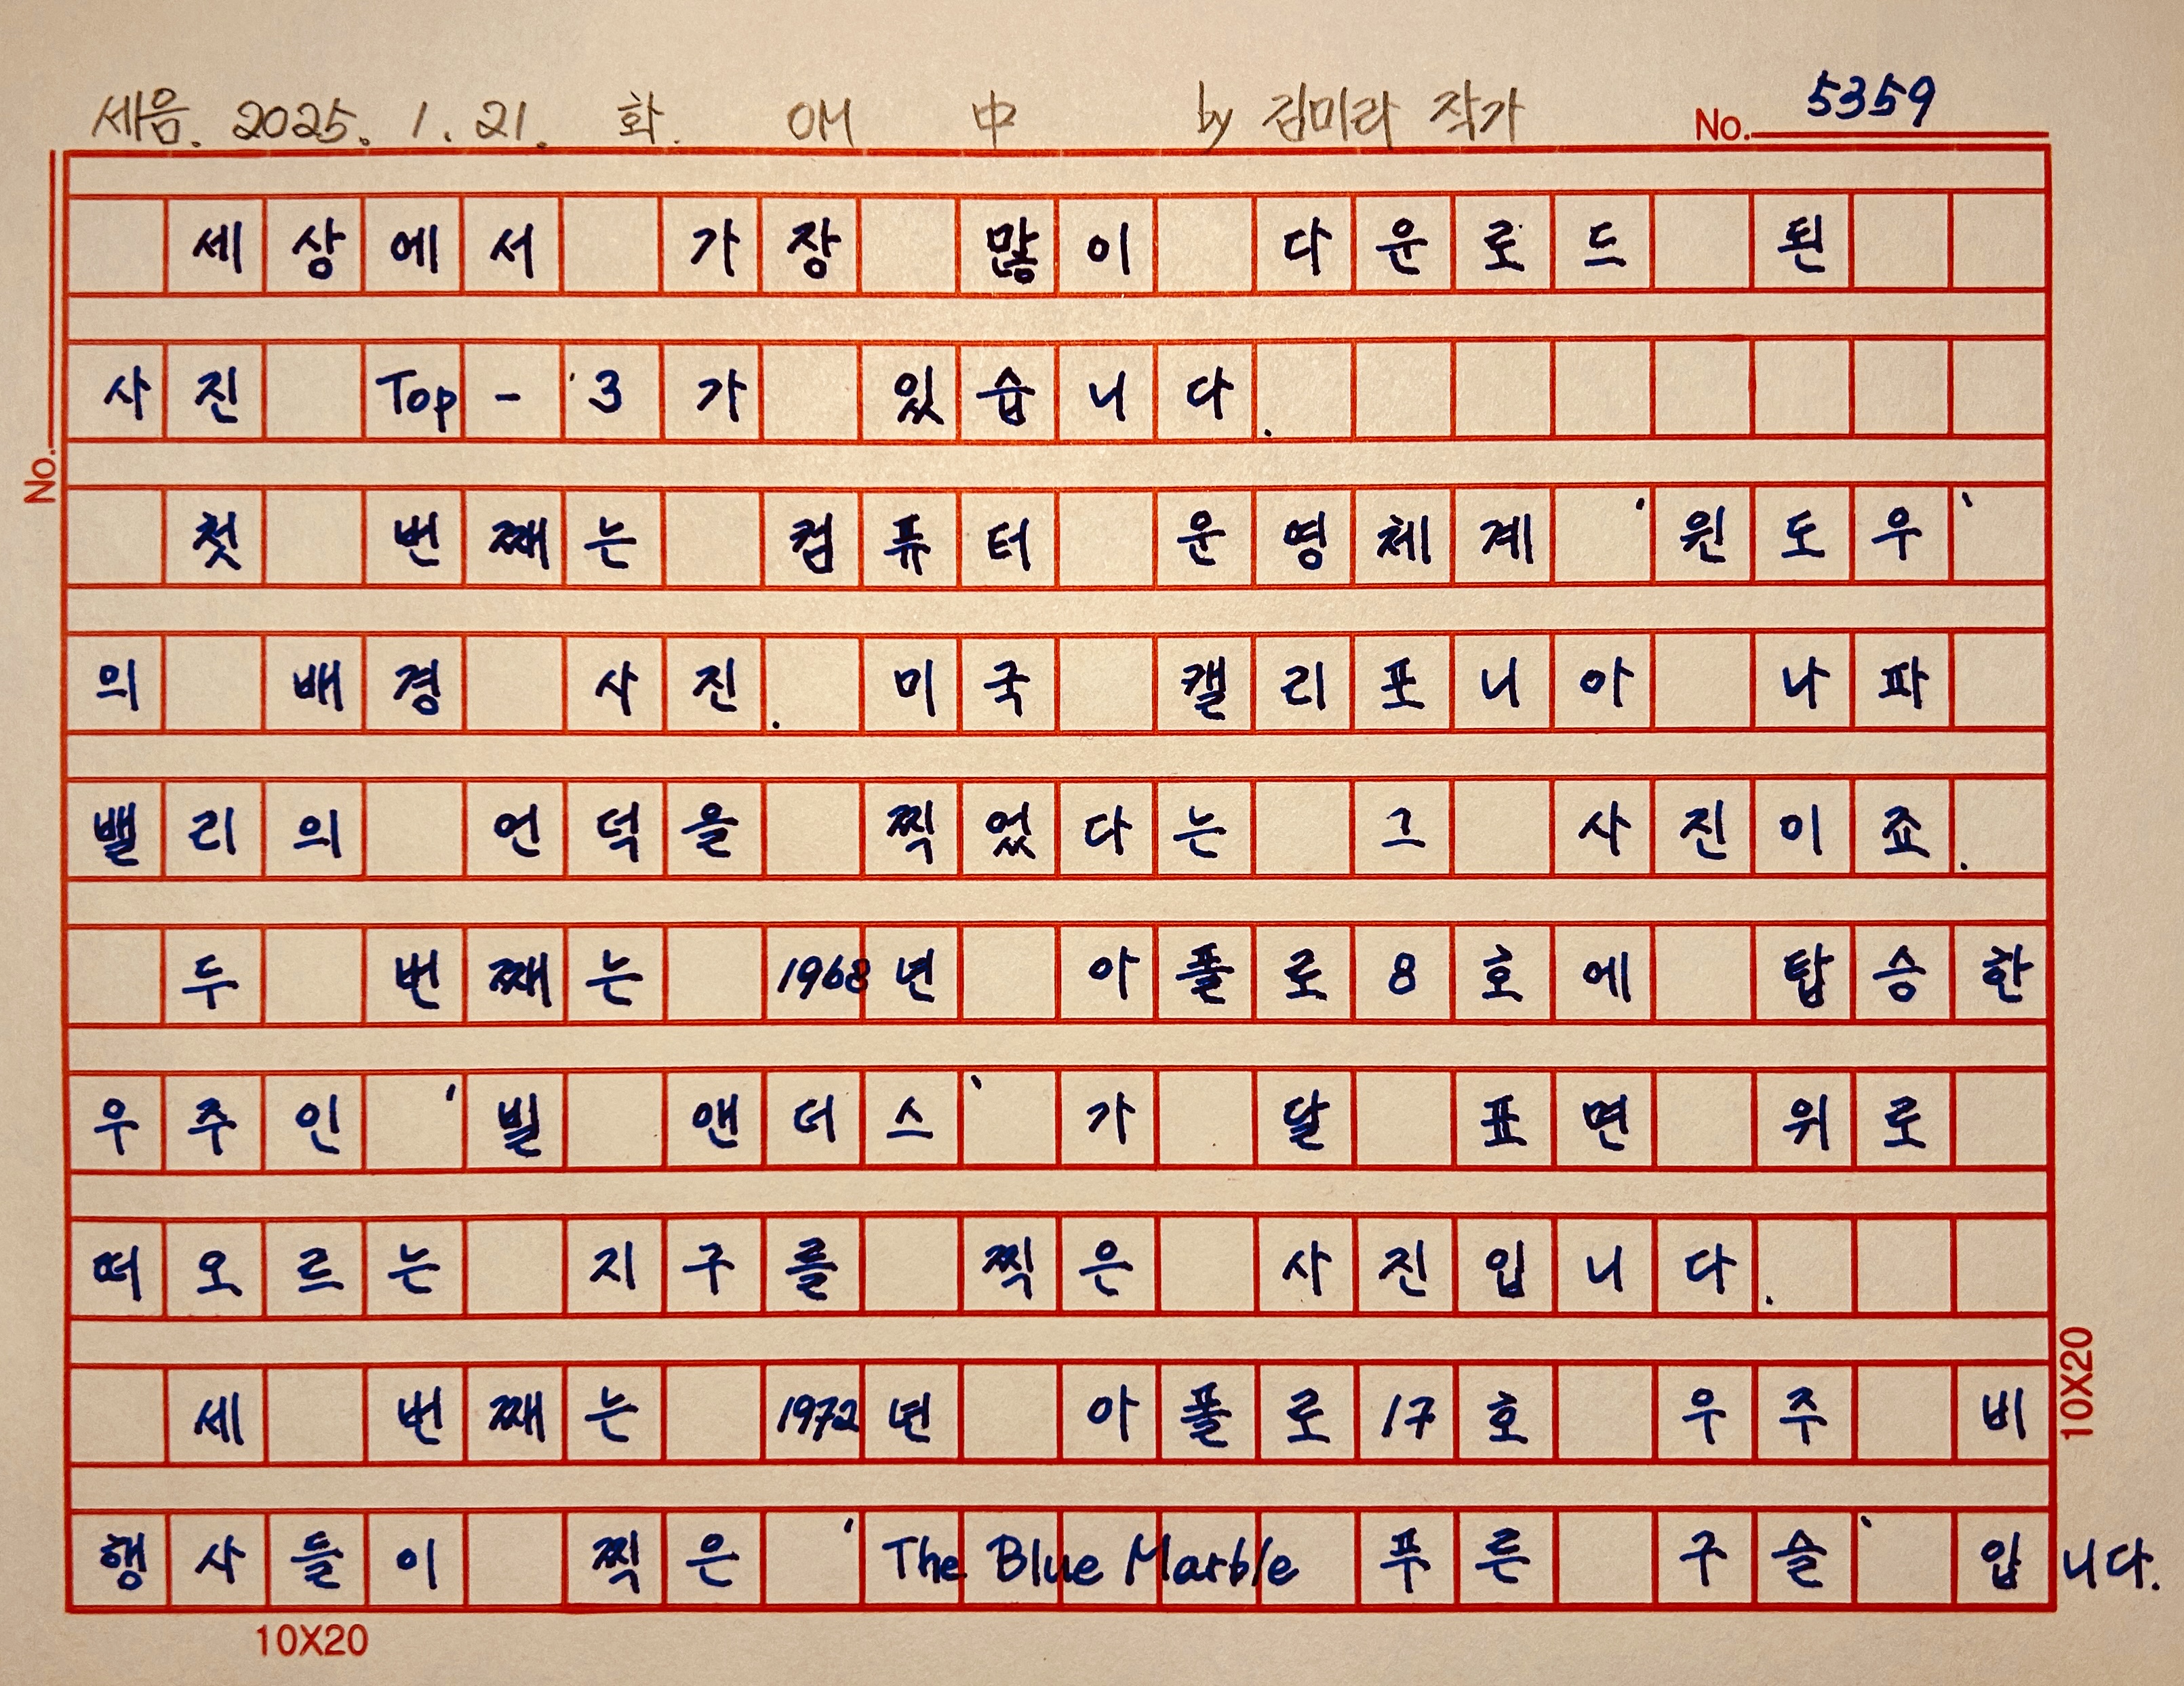 세음. 2025. 1. 21. 화. 애 中 by 김미라 작가 No. 5359
세상에서 가장 많이 다운로드 된
사진 Top-3가 있습니다.
No.
첫 번째는 컴퓨터 운영체계 '윈도우'
의 배경 사진. 미국 캘리포니아 나파
밸리의 언덕을 찍었다는 그 사진이죠.
두 번째는 1968년 아폴로8호에 탑승한
우주인 '빌 앤더스'가 달 표면 위로
떠오르는 지구를 찍은 사진입니다.
세 번째는 1972년 아폴로17호 우주 비
행사들이 찍은 'The Blue Marble 푸른 구슬' 입니다.
10X20
10X20